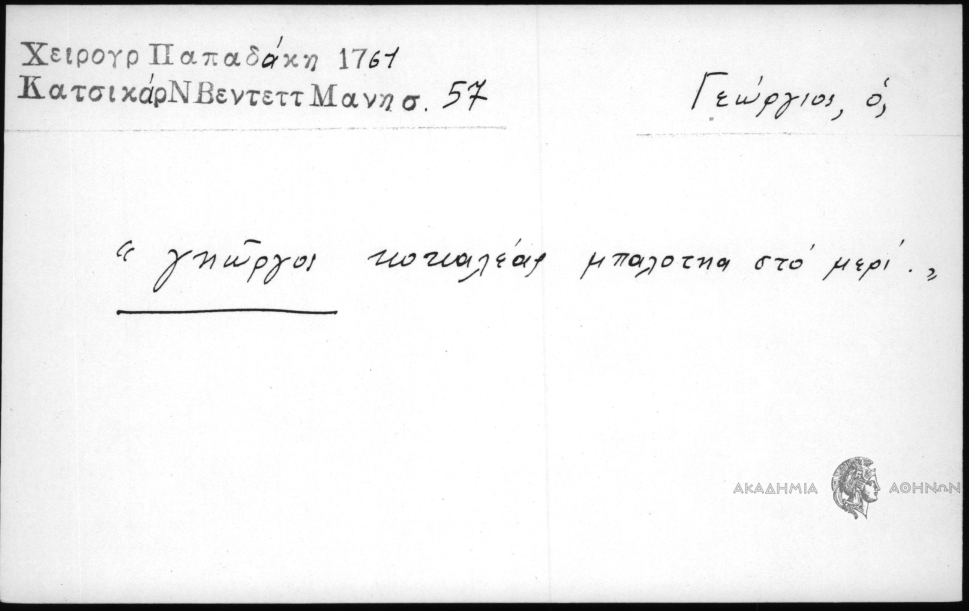 Χειρογρ Παπαδάκη 1761
Κατσικάρ Ν Βεντεττ Μανη σ. 57
Γεώργιος, ὁ,
“ γηῶργος κοκαλέας μπαλοτηα στό μερί. „
ΑΚΑΔΗΜΙΑ ΑΘΗΝΩΝ